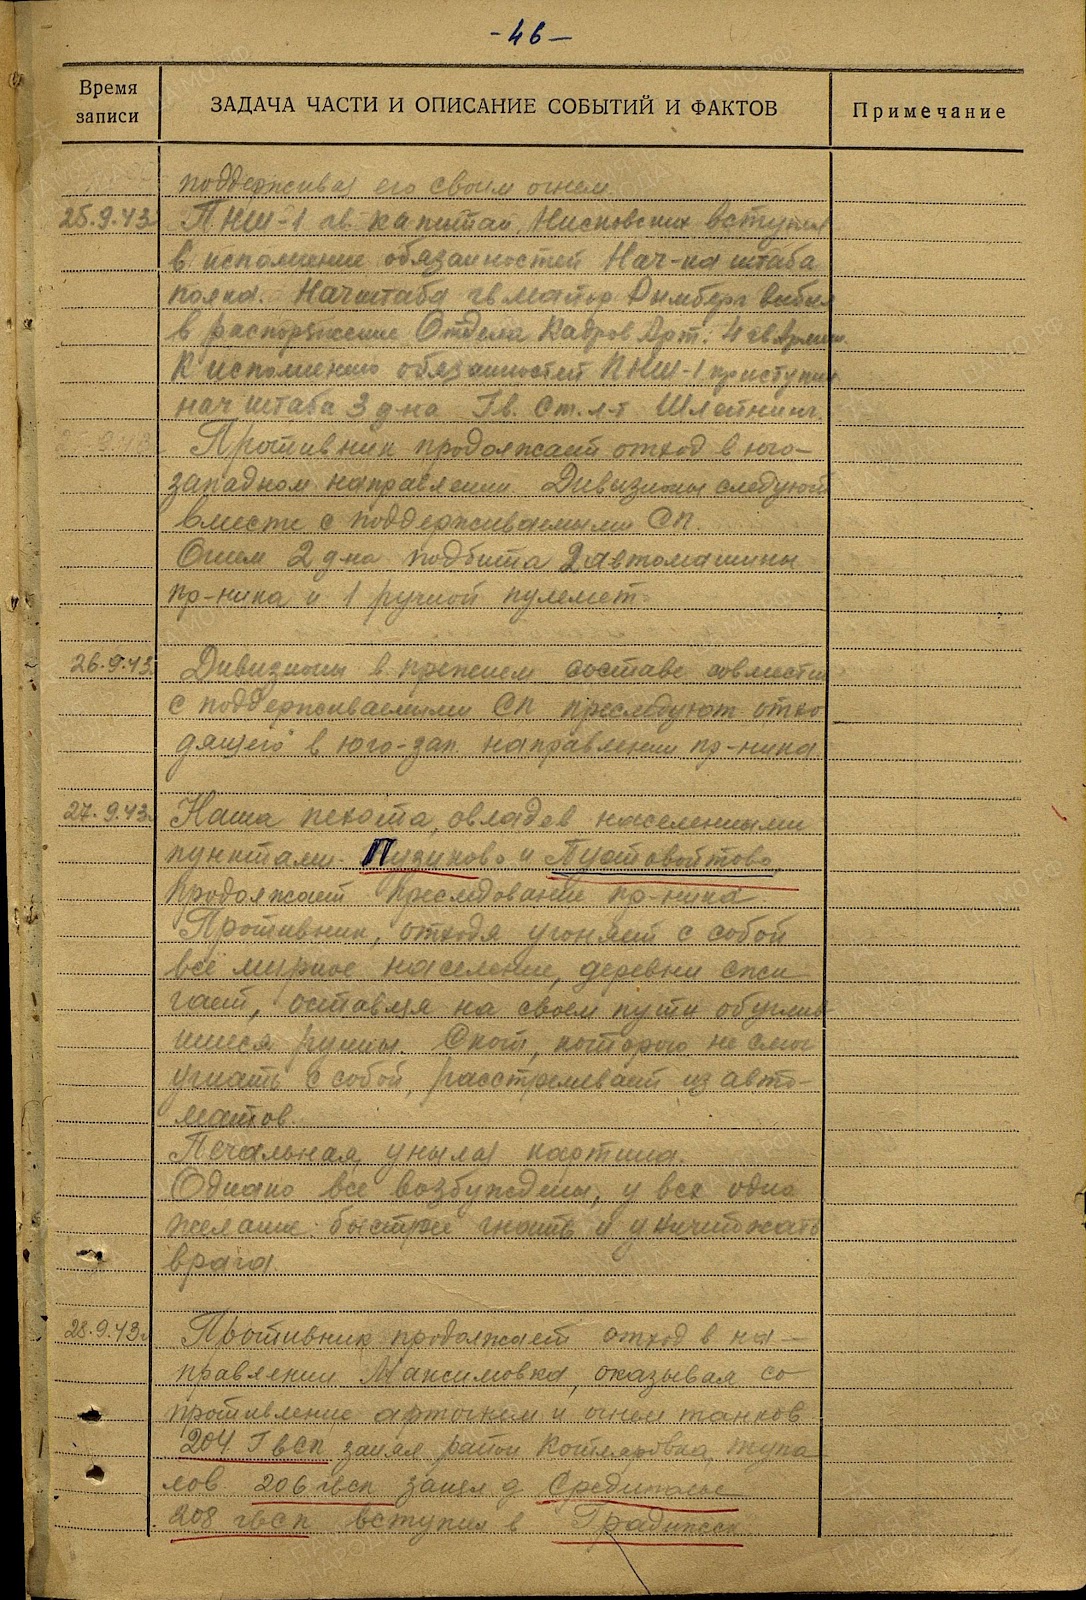 -46-
Время записи
ЗАДАЧА ЧАСТИ И ОПИСАНИЕ СОБЫТИЙ И ФАКТОВ
Примечание
поддерживая его своим огнем.
25.9.43 ПНШ-1 гв. капитан Нисковских вступил
в исполнение обязанностей Нач-ка штаба
полка. Начштаба гв майор Дымберг выбыл
в распоряжение Отдела Кадров Арт. 4 гв Армии.
К исполнению обязанностей ПНШ-1 приступил
нач штаба 3 д-на Гв. Ст. л-т Шлейнинг.
Противник продолжает отход в юго-
западном направлении. Дивизионы следуют
вместе с поддерживаемыми СП.
Огнем 2 д-на подбита 2 автомашины
пр-ника и 1 ручной пулемет.
26.9.43 Дивизионы в прежнем составе совместно
с поддерживаемыми СП преследуют отхо
дящего в юго-зап. направлении пр-ника.
27.9.43 Наша пехота, овладев населенными
пунктами Пузиково и Пустовойтово
продолжает преследование пр-ника.
Противник, отходя угоняет с собой
всё мирное население, деревни сжи
гает, оставляя на своем пути обуглив
шиеся руины. Скот, которого не смог
угнать с собой, расстреливает из авто-
матов.
Печальная, унылая картина.
Однако все возбуждены, у всех одно
желание: быстрее гнать и уничтожать
врага.
28.9.43г Противник продолжает отход в на-
правлении Максимовка, оказывая со
противление артогнем и огнем танков
204 ГвСП занял район Котляровка, Тупа
лов 206 гвсп занял д.
208 гвсп вступил в Градижск